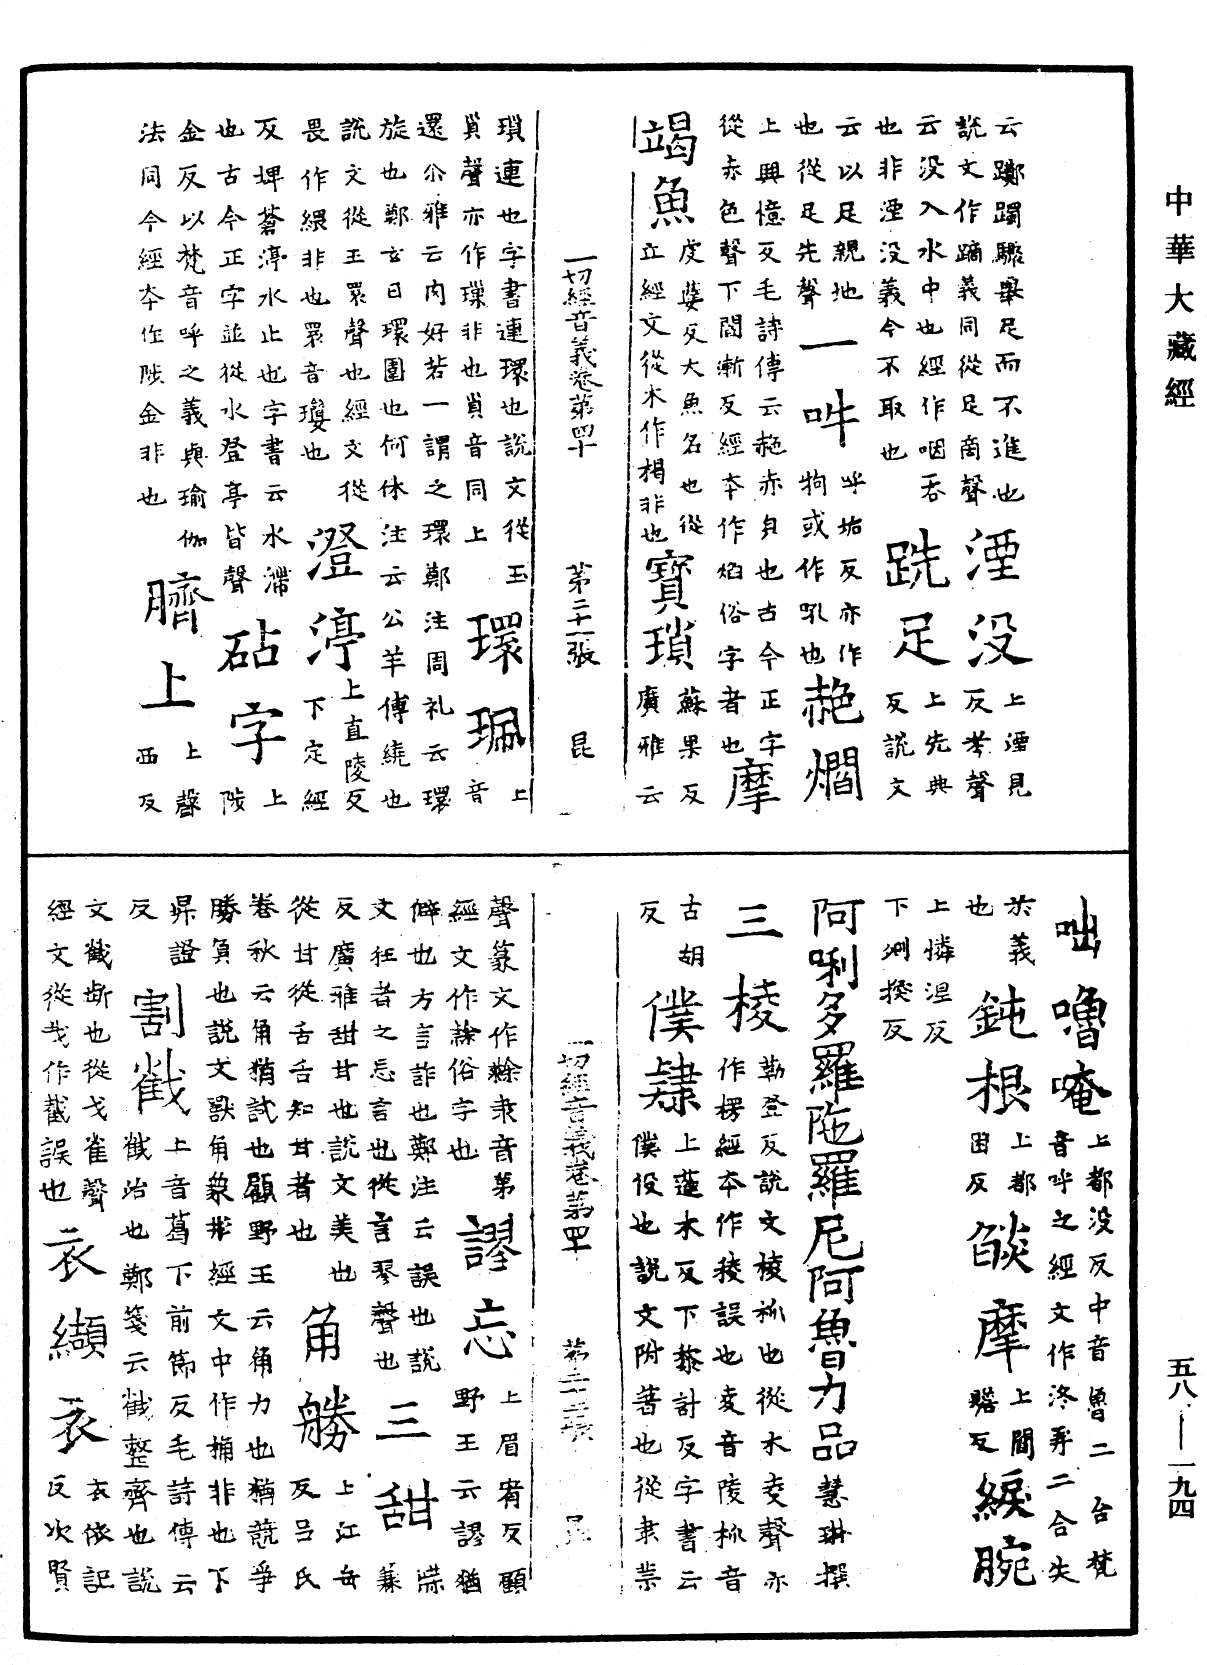 中華大藏經
云躑躅驟舉足而不進也
説文作蹢義同從足啇聲
湮没
上湮見
反考聲
云没入水中也經作咽吞
也非湮没義今不取也
跣足
上先典
反説文
云以足親地
也從足先聲
一吽
呼垢反亦作
㸸或作吼也
赩爓
上興憶反毛詩傳云赩赤皃也古今正字
從赤色聲下閻漸反經本作焰俗字者也
摩
竭魚
虔蘖反大魚名也從
立經文從木作楬非也
寶瑣
蘇果反
廣雅云
一切經音義卷第四十 第二十一張 昆
瑣連也字書連環也説文從玉
𧴪聲亦作璅非也𧴪音同上
環珮
上
音
還尒雅云肉好若一謂之環鄭注周礼云環
旋也鄭玄曰環圍也何休注云公羊傳繞也
説文從王睘聲也經文從
畏作㺬非也睘音瓊也
澄渟
上直陵反
下定經
反埤蒼渟水止也字書云水滯
也古今正字並從水登亭皆聲
砧字
上
陟
金反以梵音呼之義與瑜伽
法同今經本作陟金非也
臍上
上齎
西反
咄嚕唵
上都没反中音魯二合梵
音呼之經文作泠弄二合失
於義
也
鈍根
上都
困反
燄摩
上閻
贍反
綟腕
上憐涅反
下剜換反
阿唎多羅陁羅尼阿魯力品 慧琳撰
三棱
勒登反説文棱柧也從木夌聲亦
作楞經本作稜誤也夌音陵柧音
古胡
反
僕隸
上蓬木反下黎計反字書云
僕役也説文附著也從隶柰
一切經音義卷第四十 第二十二張 昆
聲篆文作䊫隶音第
經文作隸俗字也
謬忘
上眉宥反顧
野王云謬猶
僻也方言詐也鄭注云誤也説
文狂者之忘言也從言翏聲也
三甜
牒
兼
反廣雅甜甘也説文美也
從甘從舌舌知甘者也
角勝
上江岳
反呂氏
春秋云角猶試也顧野王云角力也猶競爭
勝負也説文獸角象形經文中作捔非也下
昇證
反
割截
上音葛下前節反毛詩傳云
截治也鄭箋云截整齊也説
文截斷也從戈雀聲
經文從𢦏作截誤也
衣纈衣
衣依記
反次賢
五八—一九四